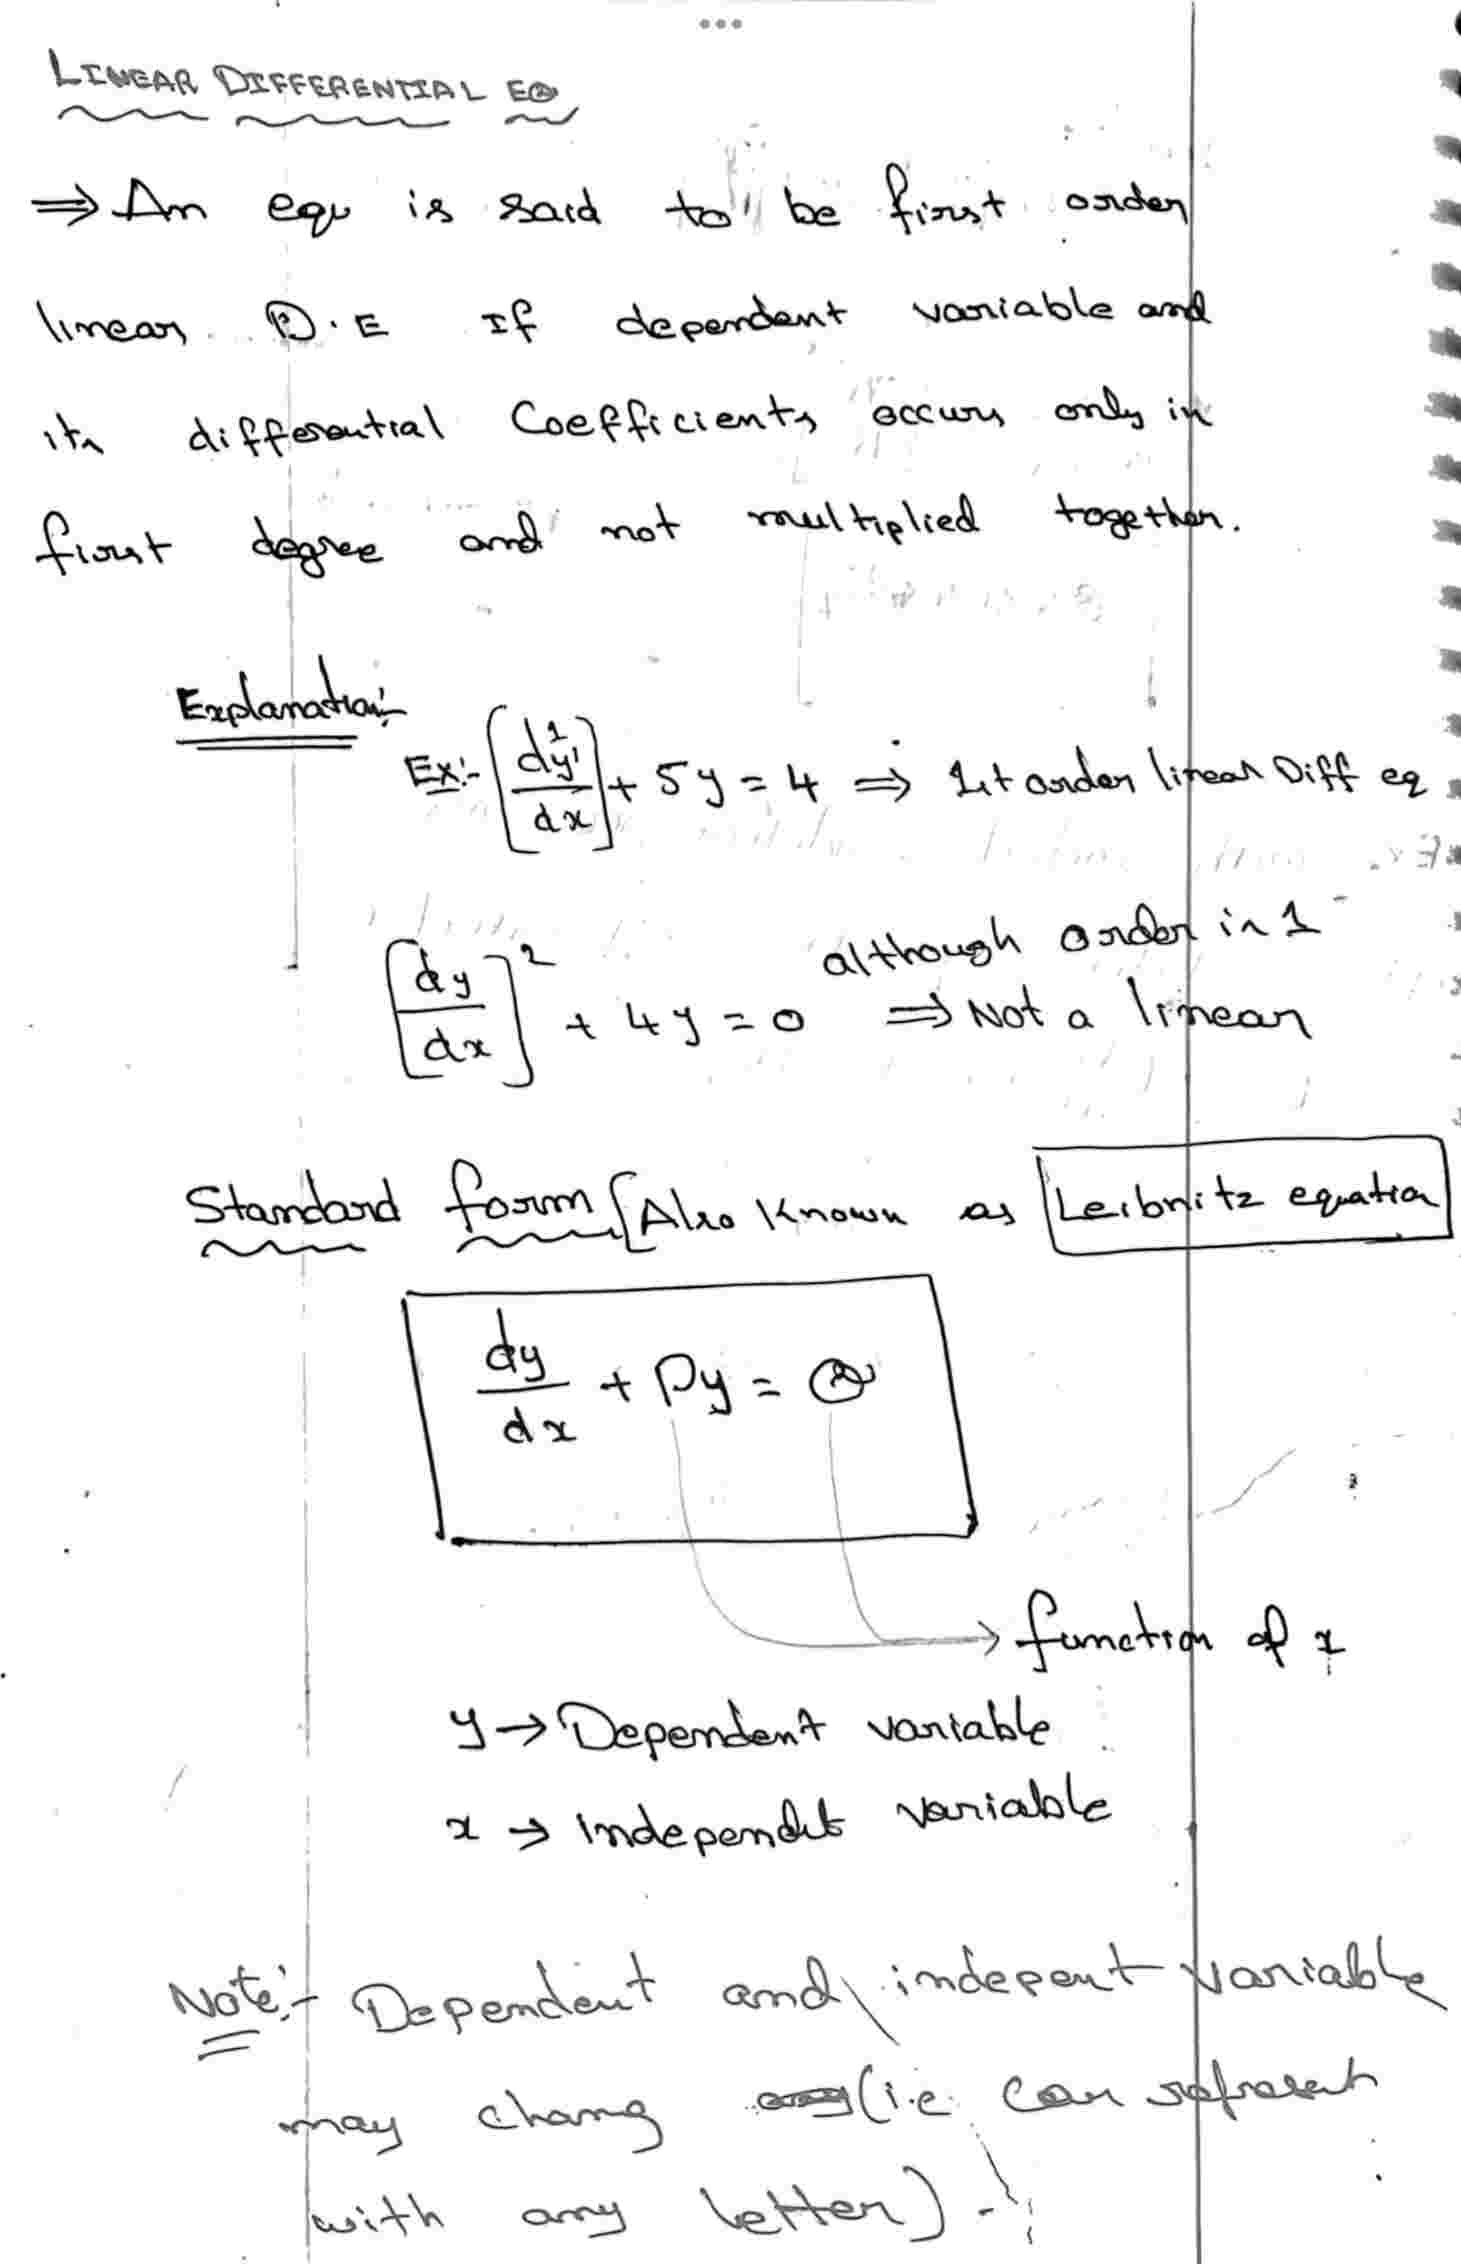 LINEAR DIFFERENTIAL EQ
⇒ An equ is said to be first order
linear D.E If dependent variable and
its differential Coefficients occurs only in
first degree and not multiplied together.
Explanation:-
Ex:- [dy¹/dx]¹ + 5y = 4 ⇒ 1st order linear Diff eq
[dy/dx]² + 4y = 0 although order is 1
⇒ Not a linear
Standard form [Also Known as Leibnitz equation
dy/dx + Py = Q
→ function of x
y → Dependent variable
x → Independet variable
Note:- Dependent and indepent variable
may chang (i.e. can represent
with any letter).